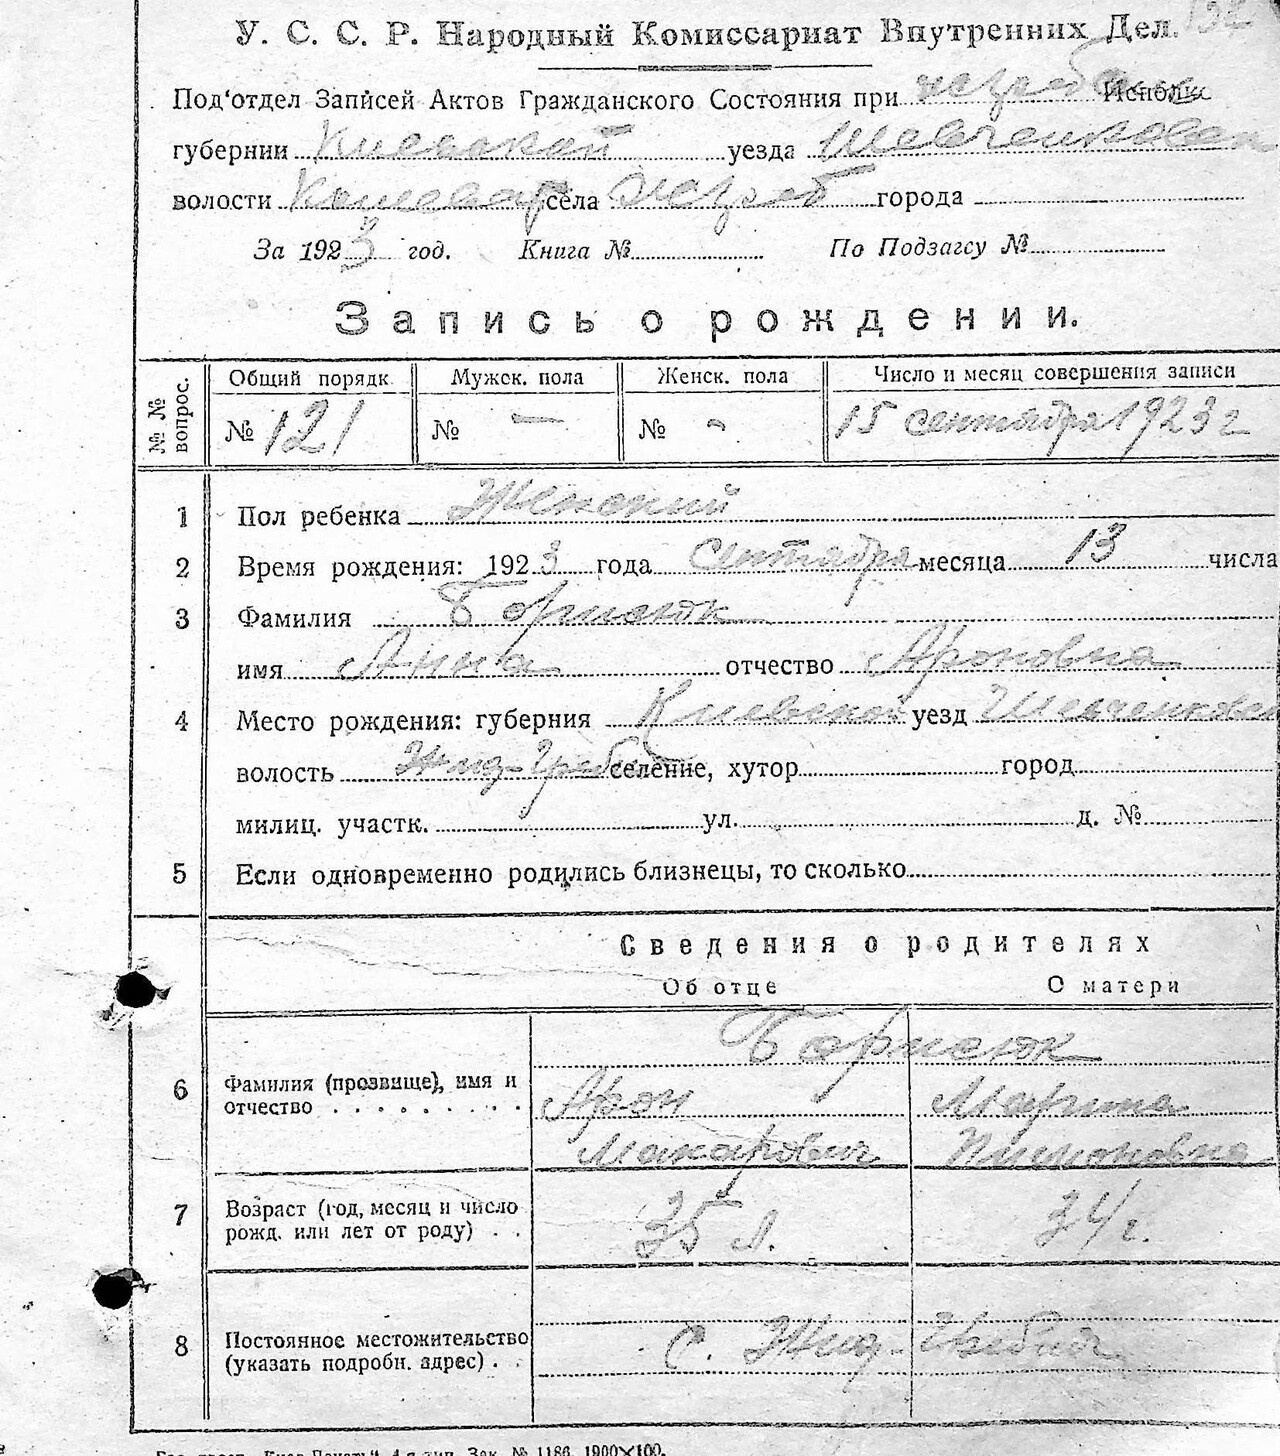 У. С. С. Р. Народный Комиссариат Внутренних Дел.
Под'отдел Записей Актов Гражданского Состояния при Исполк
губернии Киевской уезда Шевченковск
волости села города
За 1923 год. Книга № По Подзагсу №
Запись о рождении.
№ № вопрос.
Общий порядк. Мужск. пола Женск. пола Число и месяц совершения записи
№ 121 № — № - 15 сентября 1923 г
1 Пол ребенка Женский
2 Время рождения: 1923 года Сентября месяца 13 числа
3 Фамилия Борисюк
имя Анна отчество Ароновна
4 Место рождения: губерния Киевской уезд Шевченковск
волость Жид-Греб селение, хутор город
милиц. участк. ул. д. №
5 Если одновременно родились близнецы, то сколько
Сведения о родителях
Об отце О матери
Борисюк
6 Фамилия (прозвище), имя и отчество . . . . . . . . . Арон Марина
Макарович
7 Возраст (год, месяц и число рожд. или лет от роду) . . 35 л. 34 г.
8 Постоянное местожительство (указать подробн. адрес) . . С. Жид-
№ 1186. 1900×100.